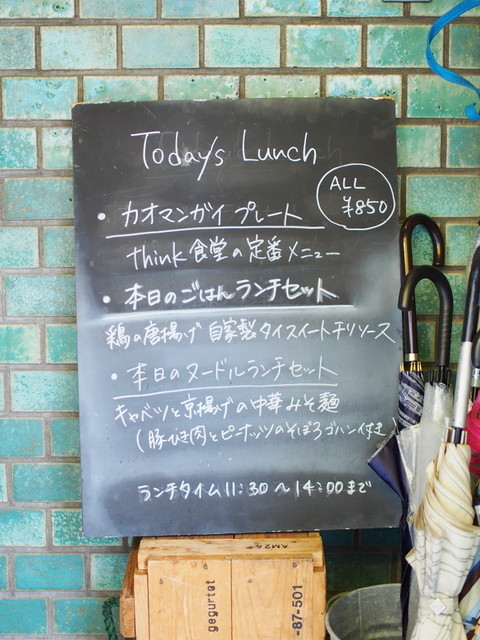 Todays Lunch
ALL
¥850
• カオマンガイ プレート
think 食堂の定番メニュー
• 本日のごはんランチセット
鶏の唐揚げ 自家製タイスイートチリソース
• 本日のヌードルランチセット
キャベツと京揚げの中華みそ麺
(豚ひき肉とピーナッツのそぼろゴハン付き)
ランチタイム11:30〜14:00まで
AM24
gegurtet
-87-501